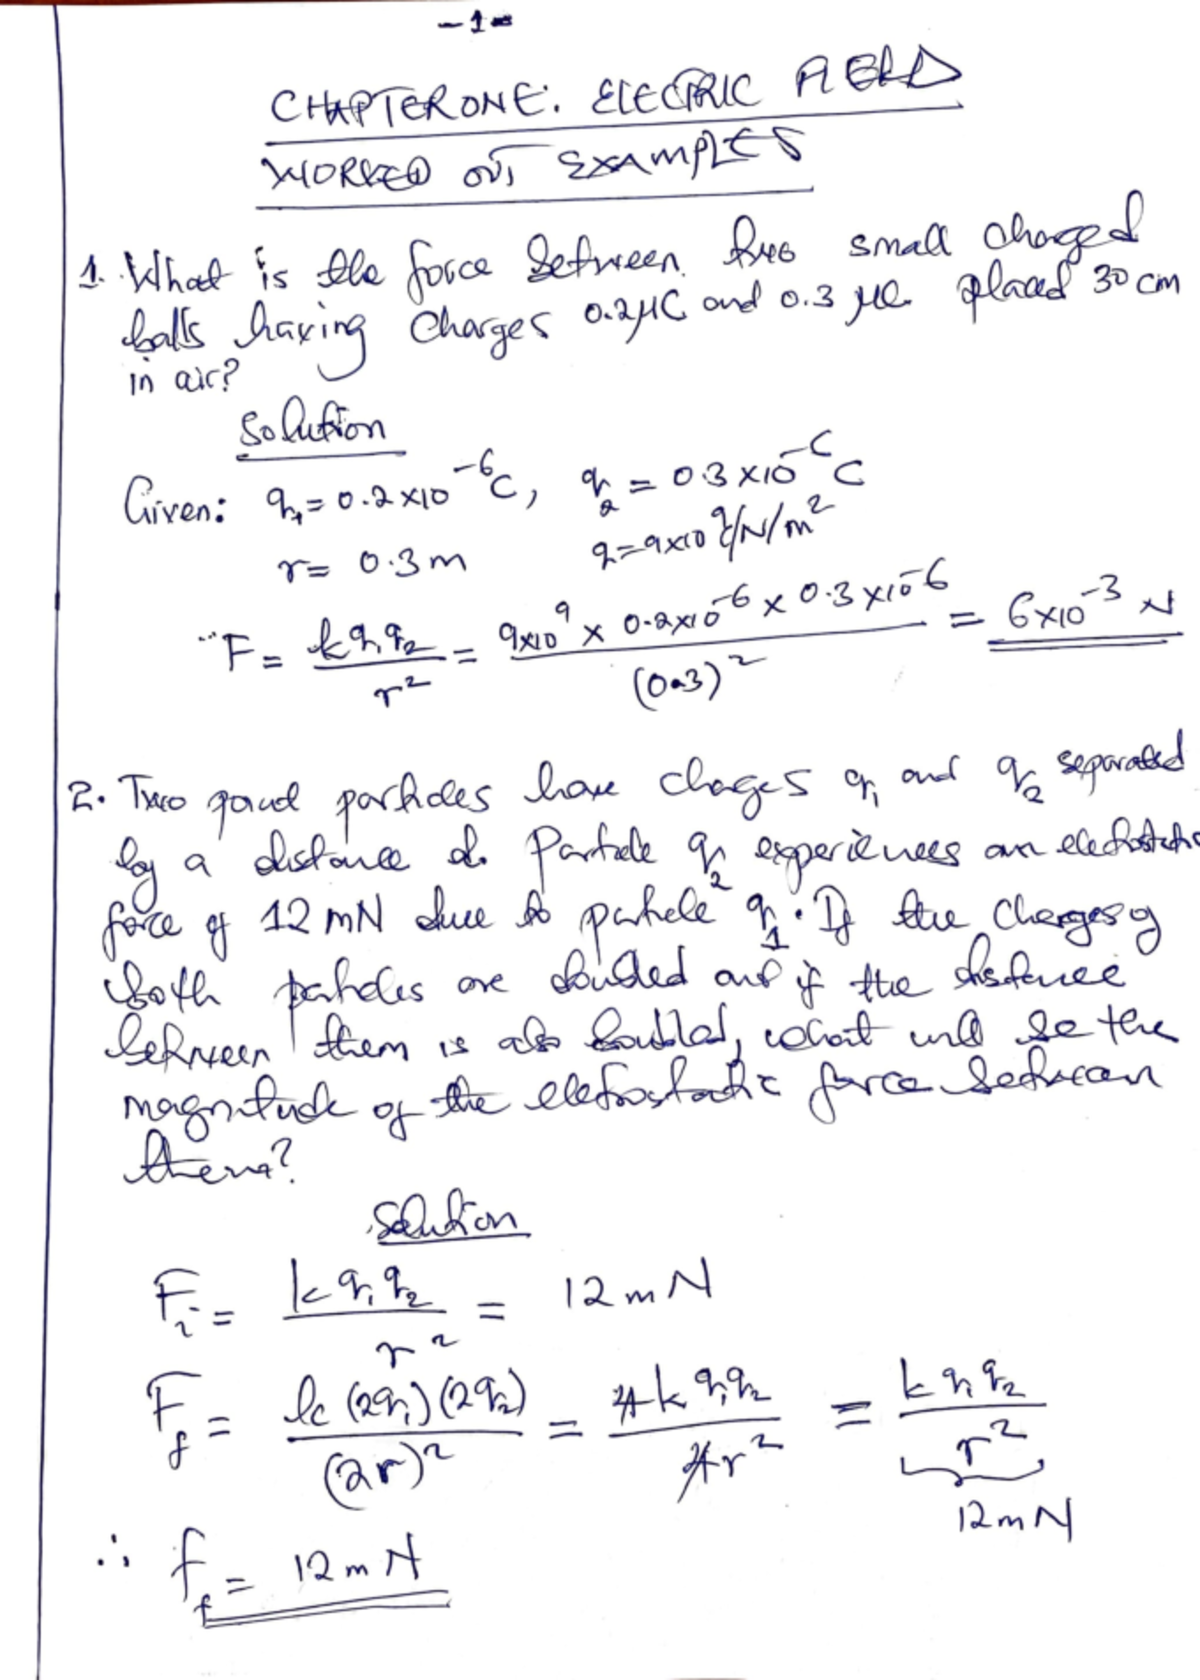 -1-
CHAPTER ONE: ELECTRIC FIELD
WORKED OUT EXAMPLES
1. What is the force between two small charged
balls having charges 0.2μC and 0.3 μC placed 30 cm
in air?
Solution
Given: q₁ = 0.2×10⁻⁶C, q₂ = 0.3×10⁻⁶C
r = 0.3m
F = kq₁q₂/r² = 9×10⁹ × 0.2×10⁻⁶ × 0.3×10⁻⁶/(0.3)² = 6×10⁻³ N
2. Two particles have charges q₁ and q₂ separated
by a distance d. Particle q₂ experiences an electrostatic
force of 12 mN due to particle q₁. If the charges of
both particles are doubled and if the distance
between them is also doubled, what will be the
magnitude of the electrostatic force between
them?
Solution
Fᵢ = kq₁q₂/r² = 12mN
F_f = k(2q₁)(2q₂)/(2r)² = 4kq₁q₂/4r² = kq₁q₂/r²
12mN
∴ F_f = 12mN